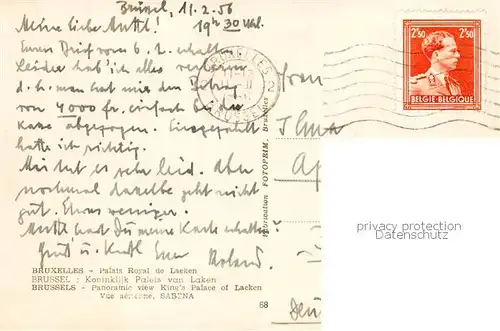 Brüssel, 11.2.56
19h 30 Uhr.
Meine liebe Mutti!
Euren Brief vom 6. 2. erhalten
Leider hab' ich alles verloren
d.h. man hat mir den Betrag
von 4000 fr. einfach bei der
Kasse abgezogen. Eingezahlt
hatte ich richtig.
Mir tut es sehr leid. Aber
nochmal dasselbe geht nicht
gut. Etwas weniger.
Mutti hast Du meine Karte erhalten?
Gruß u. Kuß Euer Roland.
BRUXELLES - Palais Royal de Laeken
BRUSSEL : Koninklijk Paleis van Laken
BRUSSELS - Panoramic view King's Palace of Laeken
Vue aérienne, SABENA
68
Fabrication FOTOPRIM, Bruxelles
BRUXELLES 2
BRUSSEL
2F50 2F50
BELGIE-BELGIQUE
Frau
Ilma
privacy protection
datenschutz